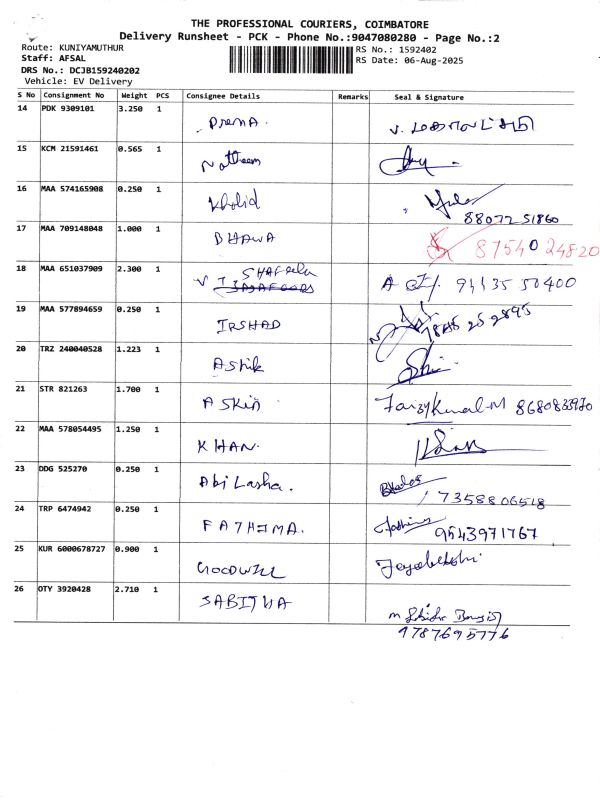 THE PROFESSIONAL COURIERS, COIMBATORE
Delivery Runsheet - PCK - Phone No.:9047080280 - Page No.:2
Route: KUNIYAMUTHUR RS No.: 1592402
Staff: AFSAL RS Date: 06-Aug-2025
DRS No.: DCJB159240202
Vehicle: EV Delivery
S No Consignment No Weight PCS Consignee Details Remarks Seal & Signature
14 PDK 9309101 3.250 1 Prema.
15 KCM 21591461 0.565 1 Natheem
16 MAA 574165908 0.250 1 Kholid
88072 51860
17 MAA 709148048 1.000 1 BHAWA 87540 24820
18 MAA 651037909 2.300 1 94435 50400
19 MAA 577894659 0.250 1 IRSHAD
20 TRZ 240040528 1.223 1 Ashik
21 STR 821263 1.700 1 ASKIN 8680833970
22 MAA 578054495 1.250 1 KHAN.
23 DDG 525270 0.250 1 Abi Lasha.
7358806518
24 TRP 6474942 0.250 1 FATHIMA. 9543971767
25 KUR 6000678727 0.900 1 GOODWILL
26 OTY 3920428 2.710 1 SABITHA
9787695776